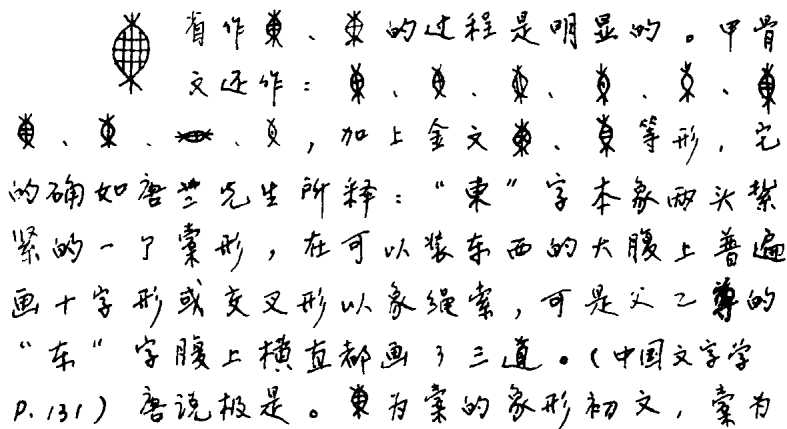 省作東、東的过程是明显的。甲骨
文还作：
加上金文東、東等形，它
的确如唐兰先生所释：“東”字本象两头紮
紧的一个橐形，在可以装东西的大腹上普遍
画十字形或交叉形以象绳索，可是父乙尊的
“东”字腹上横直都画了三道。（中国文字学
P.131）唐说极是。東为橐的象形初文，橐为